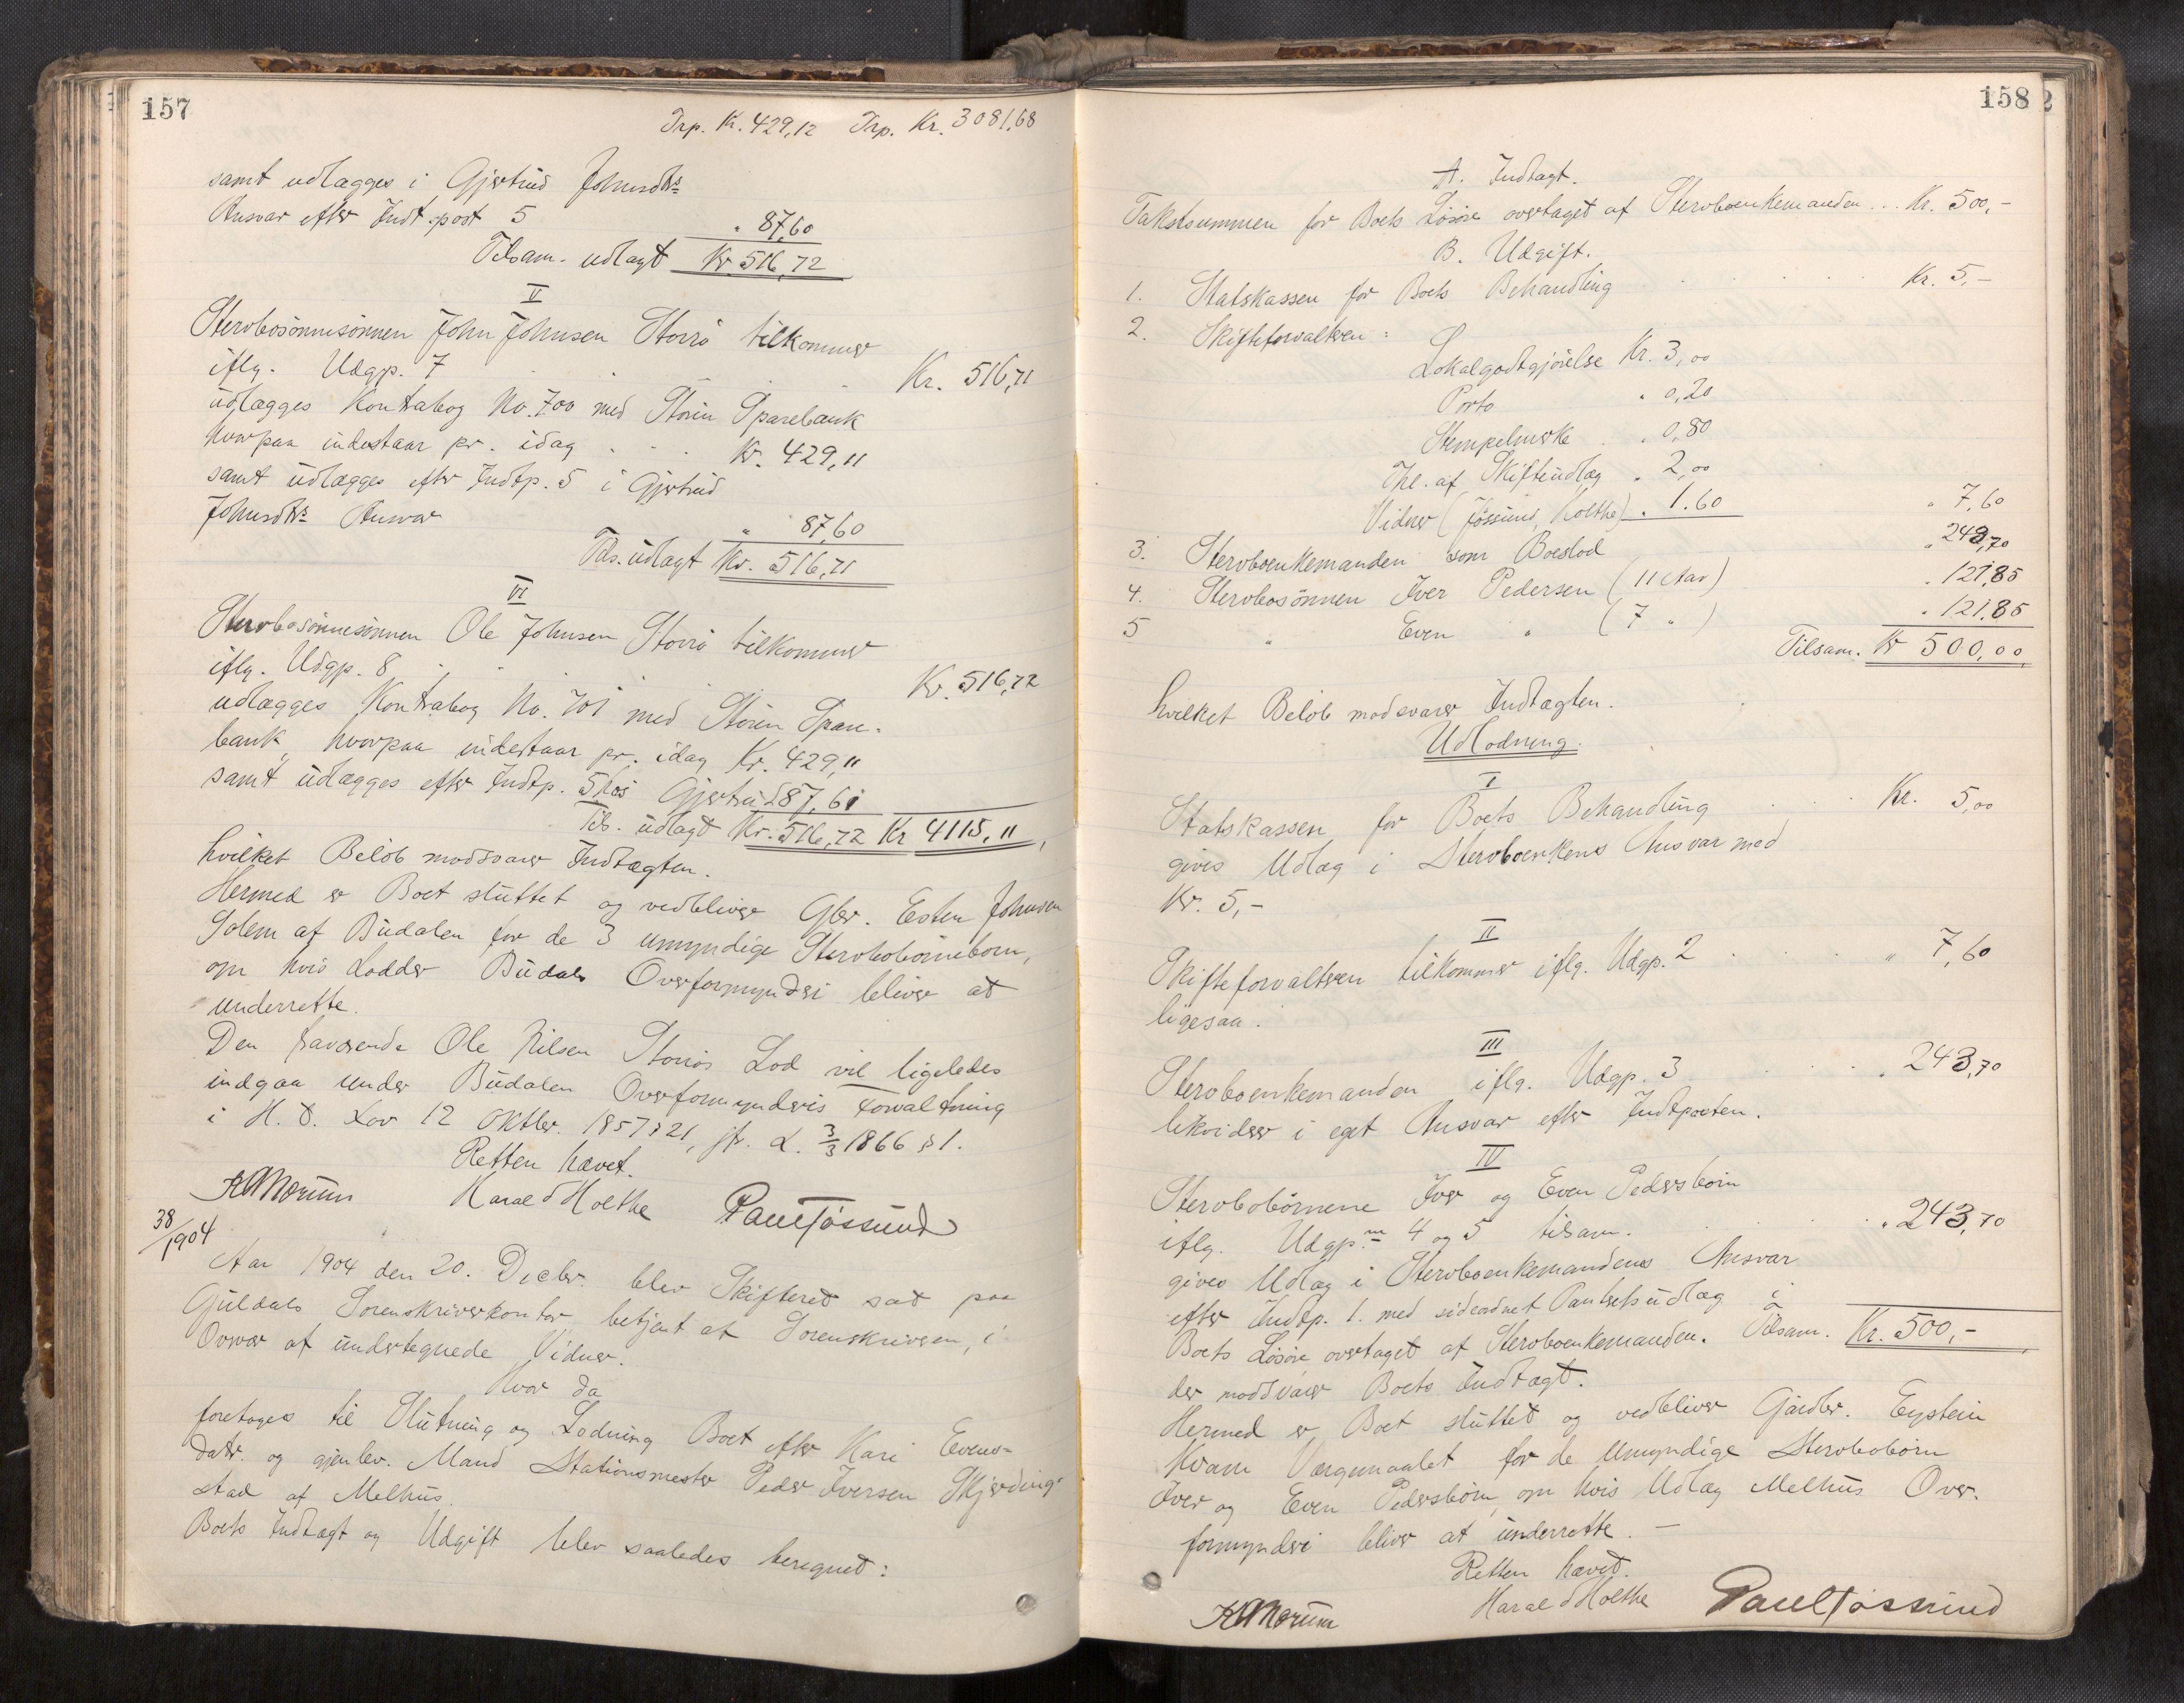 157
Trp. Kr. 429,12 Trp. Kr. 3081,68
samt udlægges i Gjertrud Johnsdtrs
Ansvar efter Indt.post 5 " 87,60
Tilsam. udlagt Kr 516,72
V
Sterbosønnesønnen John Johnsen Storrø tilkommer
iflg. Udgp. 7 . . . Kr. 516,71
udlægges Kontrabog No. 700 med Støren Sparebank
hvorpaa indestaar pr. idag . . . Kr. 429,11
samt udlægges efter Indtp. 5 i Gjertrud
Johnsdtrs Ansvar " 87,60
Tils. udlagt Kr. 516,71
VI
Sterbosønnesønnen Ole Johnsen Storrø tilkommer
iflg. Udgp. 8 . . . Kr. 516,72
udlægges Kontrabog No. 701 med Støren Spare-
bank, hvorpaa indestaar pr. idag Kr. 429,11
samt udlægges efter Indtp. 5 hos Gjertrud 87,61
Tils. udlagt Kr. 516,72 Kr 4115,11,
hvilket Beløb modsvarer Indtægten.
Hermed er Boet sluttet og vedbliver Gbr. Esten Johnsen
Solem af Budalen for de 3 umyndige Sterbobørnebørn,
om hvis Lodder Budals Overformynderi bliver at
underrette.
Den fraværende Ole Nilsen Storrøs Lod vil ligeledes
indgaa under Budalen Overformynderis Forvaltning
i H. t. Lov 12 Oktbr. 1857 § 21, jfr. L. 3/3 1866 § 1.
Retten hævet.
Harald Holthe Paul Jøssund
38/1904
Aar 1904 den 20. Decbr. blev Skifteret sat paa
Guldals Sorenskriverkontor betjent af Sorenskriveren, i
Overvær af undertegnede Vidner.
Hvor da
foretoges til Slutning og Lodning Boet efter Kari Evens-
datr. og gjenlev. Mand Stationsmester Peder Iversen Skjerding-
stad af Melhus.
Boets Indtægt og Udgift blev saaledes beregnet:
158
A. Indtægt.
Takstsummen for Boets Løsøre overtaget af Sterboenkemanden... Kr. 500,-
B. Udgift.
1. Statskassen for Boets Behandling . . . . Kr. 5,-
2. Skifteforvalteren:
Lokalgodtgjørelse Kr. 3,00
Porto " 0,20
Stempelmerke . " 0,80
Thl. af Skifteudlæg " 2,00
Vidner (Jøssund, Holthe) " 1.60 " 7,60
3. Sterboenkemanden som Boeslod " 243,70
4. Sterbosønnen Iver Pedersen (11 Aar) " 121,85
5 " Even " (7 ") " 121,85
Tilsam. Kr 500,00,
hvilket Beløb modsvarer Indtægten.
Udlodning.
I
Statskassen for Boets Behandling . . . Kr. 5,00
gives Udlæg i Sterboenkens Ansvar med
Kr. 5,-
II
Skifteforvalteren tilkommer iflg. Udgp. 2 . . . . " 7,60
ligesaa.
III
Sterboenkemanden iflg. Udgp. 3 . . . . " 243,70
likviderer i eget Ansvar efter Indtposten.
IV
Sterbobørnene Iver og Even Pedersbørn
iflg. Udgp.m 4 og 5 tilsam. . . . . " 243,70
gives Udlæg i Sterboenkemandens Ansvar
efter Indtp. 1. med sideordnet Panterets udlæg i
Boets Løsøre overtaget af Sterboenkemanden. Tilsam. Kr. 500,-,
der modsvarer Boets Indtægt.
Hermed er Boet sluttet og vedbliver Gårdbr. Eystein
Kvam Værgemaalet for de umyndige Sterbobørn
Iver og Even Pedersbørn, om hvis Udlæg Melhus Over-
formynderi bliver at underrette. —
Retten hævet.
Harald Holthe Paul Jøssund